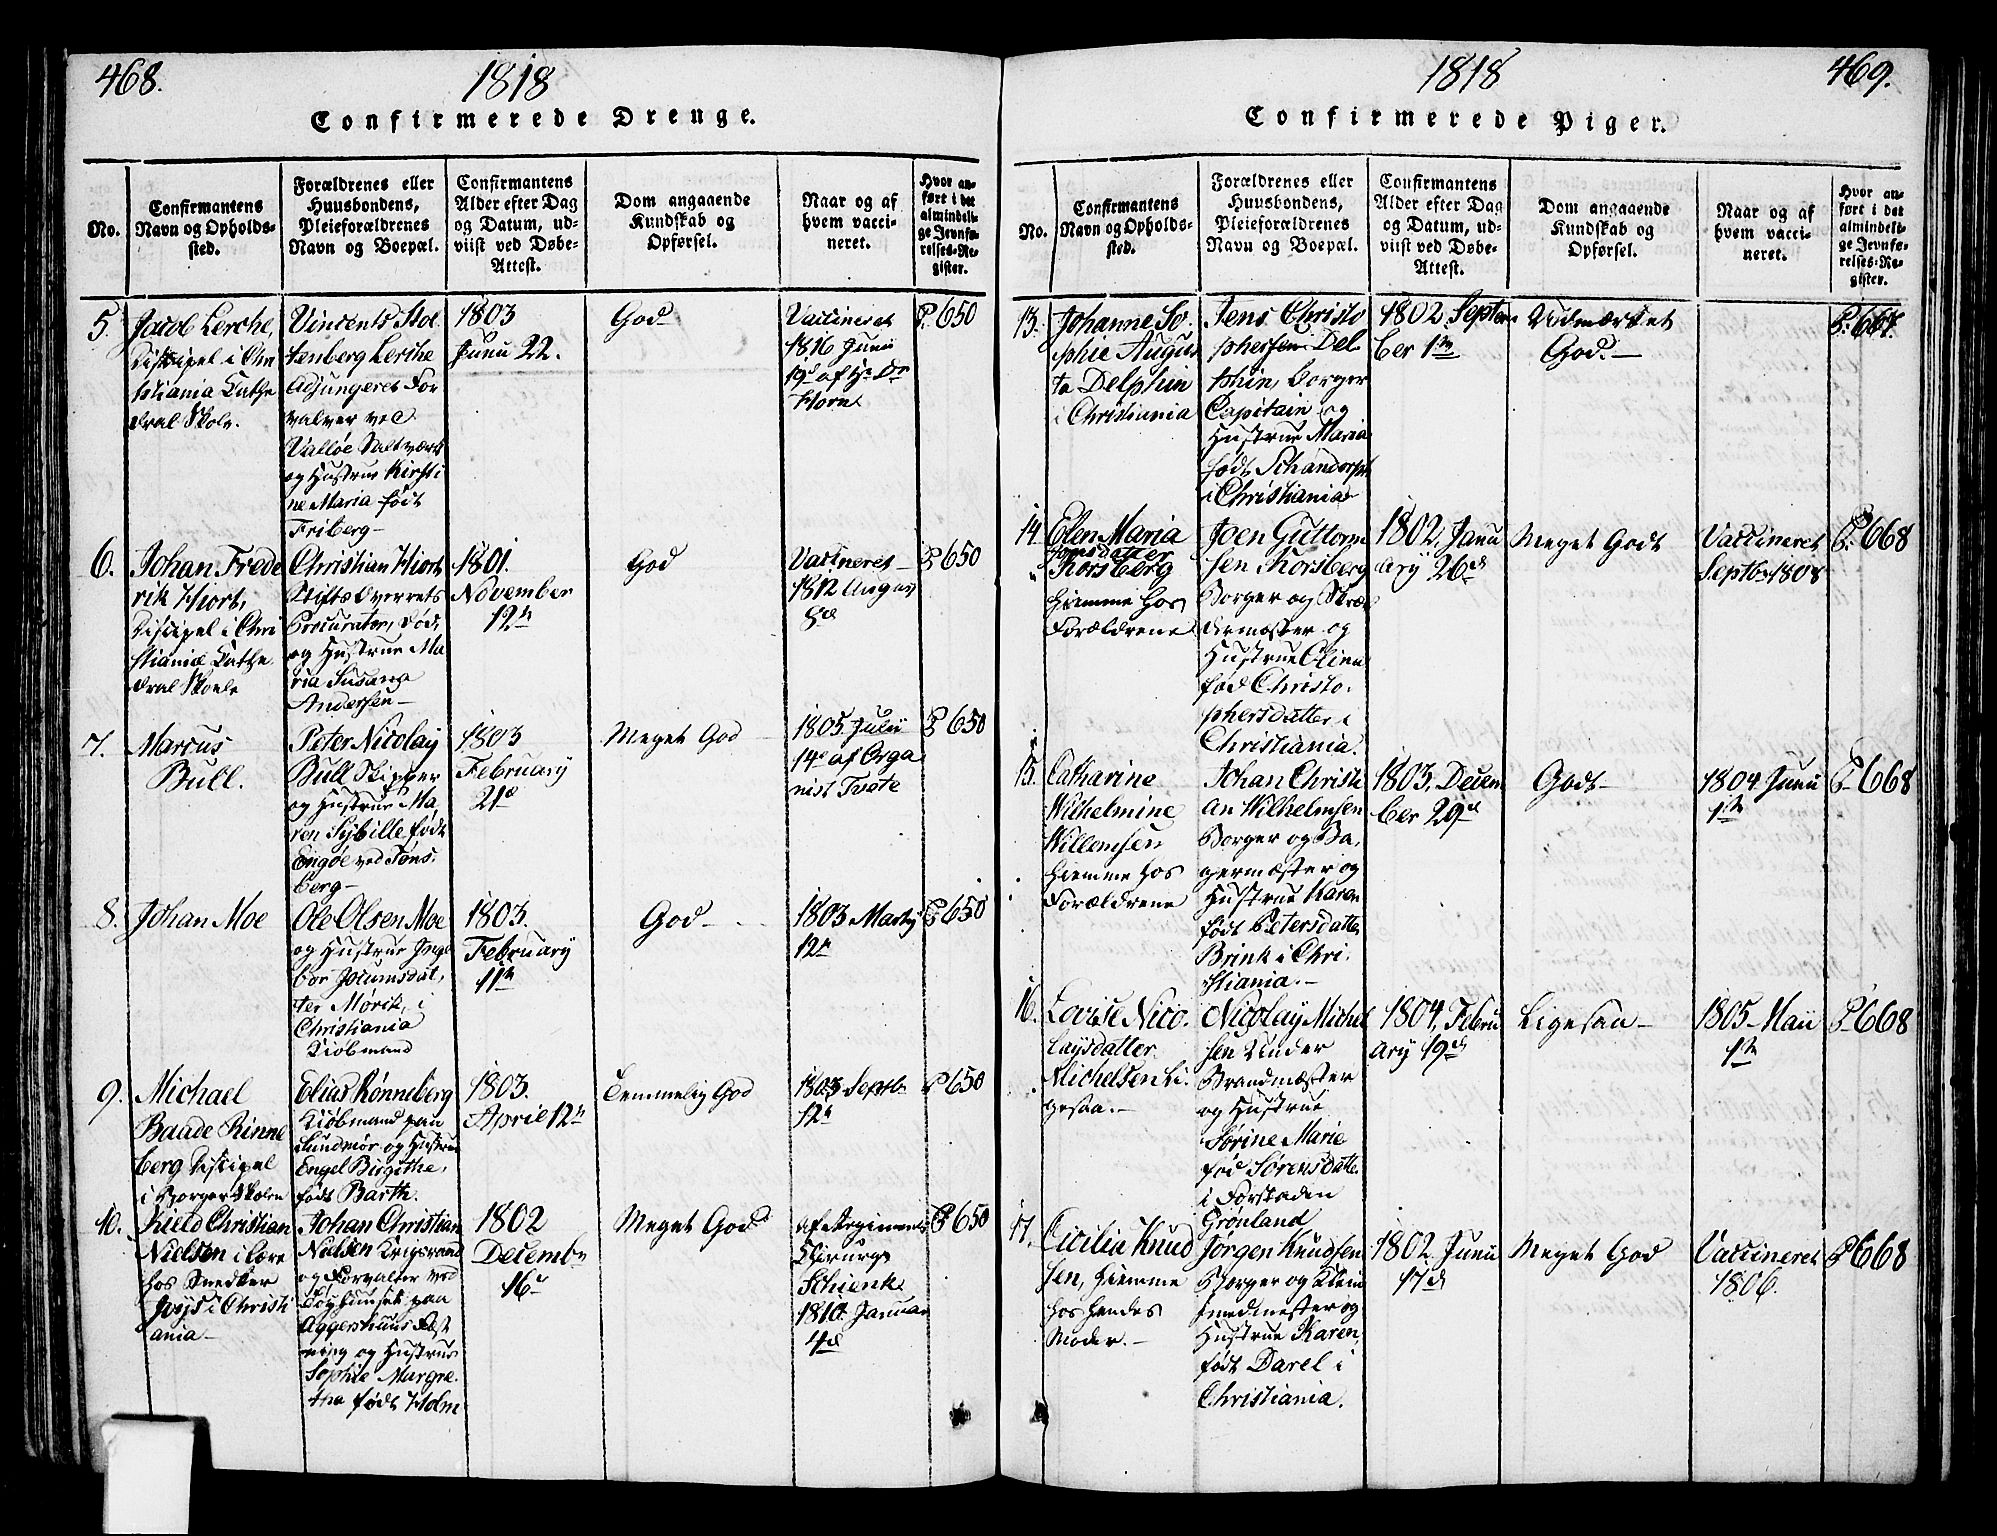 468.
1818
Confirmerede Drenge.
No.
Confirmantens
Navn og Opholds-
sted.
Forældrenes eller
Huusbondens,
Pleieforældrenes
Navn og Boepæl.
Confirmantens
Alder efter Dag
og Datum, ud-
viist ved Døbe-
Attest.
Dom angaaende
Kundskab og
Opførsel.
Naar og af
hvem vacci-
neret.
Hvor an-
ført i det
almindeli-
ge Jevnfø-
relses-Re-
gister.
5.
Jacob Lerche,
Discipel i Chri
stiania Cathe
dral Skole.
Vincents Stol
tenberg Lerche
Adjungeret For
valter ved
Valløe Saltværk
og Hustrue Kirsti
ne Maria født
Friberg-
1803
Junii 22.
God
Vaccineret
1816 Junii
19d af Hr Dr
Horn
P. 650
6.
Johan Frede
rik Hjort,
Discipel i Chri
stiania Cathe
dral Skole
Christian Hjort
Stifts Overrets
Procurator, død,
og Hustrue Ma
ria Susana
Andersen-
1801.
November
12te
God
Vaccineret
1812 August
8d
P 650
7.
Marcus
Bull.
Peter Nicolay
Bull Skipper
og Hustrue Ma
ren Sybille født
Engøe ved Tøns.
berg-
1803
February
21d
Meget God
1805 Julii
14d af Orga
nist Tvete
P 650
8.
Johan Moe
Ole Olsen Moe
og Hustrue Inge
bor Jocumsdat,
ter Mørik, i
Christiania
Kiøbmand
1803.
February
11te
God-
1803 Martii
12te
P 650
9.
Michael
Baade Rinne
berg Discipel
i Borger Skolen
Elias Rønneberg
Kiøbmand paa
Sundmør og Hustrue
Engel Birgithe,
født Barth.
1803.
April 12te
Temmelig God
1803 Septb.
12te
P 650
10.
Kield Christian
Nielsen i Lære
hos Snedker
i Christi
ania-
Johan Christian
Nielsen Krigsraad
og Forvalter ved
Tøyhuuset paa
Aggershuus Fæst
ning og Hustrue
Sophie Margre.
the født Holm
1802
Decembr
16d
Meget God
af Regiments
Chirurg
Schienk
1810. Januar
4d
P 650
1818
469.
Confirmerede Piger.
No.
Confirmantens
Navn og Opholds-
sted.
Forældrenes eller
Huusbondens,
Pleieforældrenes
Navn og Boepæl.
Confirmantens
Alder efter Dag
og Datum, ud-
viist ved Døbe-
Attest.
Dom angaaende
Kundskab og
Opførsel.
Naar og af
hvem vacci-
neret.
Hvor an-
ført i det
almindeli-
ge Jevnfø-
relses-Re-
gister.
13.
Johanne So.
phie Augus
ta Delphin
i Christiania
Jens Christo
phersen Del
phin, Borger
Capitain og
Hustrue Maria
født Schandorph
i Christiania
1802. Septem
ber 1te
Udmærket
God.-
14.
Elen Maria
Jonsdatter
Korsberg
hiemme hos
Forældrene
Joen Guttorm
sen Korsberg
Borger og Skræ
dermester og
Hustrue Oliva
fød Christo.
phersdatter i
Christiania.
1802, Janu
ary 26d
Meget Godt
Vaccineret
Septb. 1808
P. 668
15.
Catharine
Wilhelmine
Willemsen
hiemme hos
Forældrene
Johan Christi
an Wilhelmsen
Borger og Ba
germester og
Hustrue Karen
født Petersdatter
Brink i Chri.
stiania.-
1803, Decem
ber 29d
Godt-
1804 Junii
1te
P 668
16.
Lovise Nico.
laysdatter
Michelsen Li.
gesaa.-
Nicolay Michel
sen Under
Brandmester
og Hustrue
Sørine Marie
fød Sørensdatter
i Forstaden
Grønland
1804, Febru
ary 19d
Ligesaa-
1805 Maii
1te
P 668
17.
Cicilia Knud
sen, hiemme
hos hendes
Moder.-
Jørgen Knudsen
Borger og Klein
smedmester og
Hustrue Karen,
født Darel i
Christiania.
1802 Junii
17d
Meget God
Vaccineret
1806.
P 668